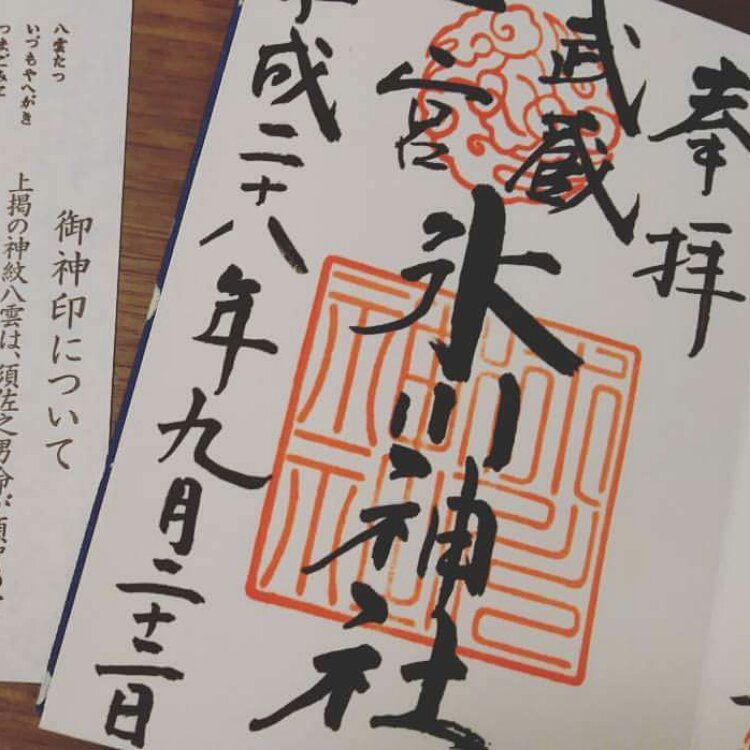 奉拝
武蔵
一宮
氷川神社
平成二十八年九月二十二日
八雲たつ
いづもやへがき
つまごみに
御神印について
上掲の神紋八雲は、須佐之男命が